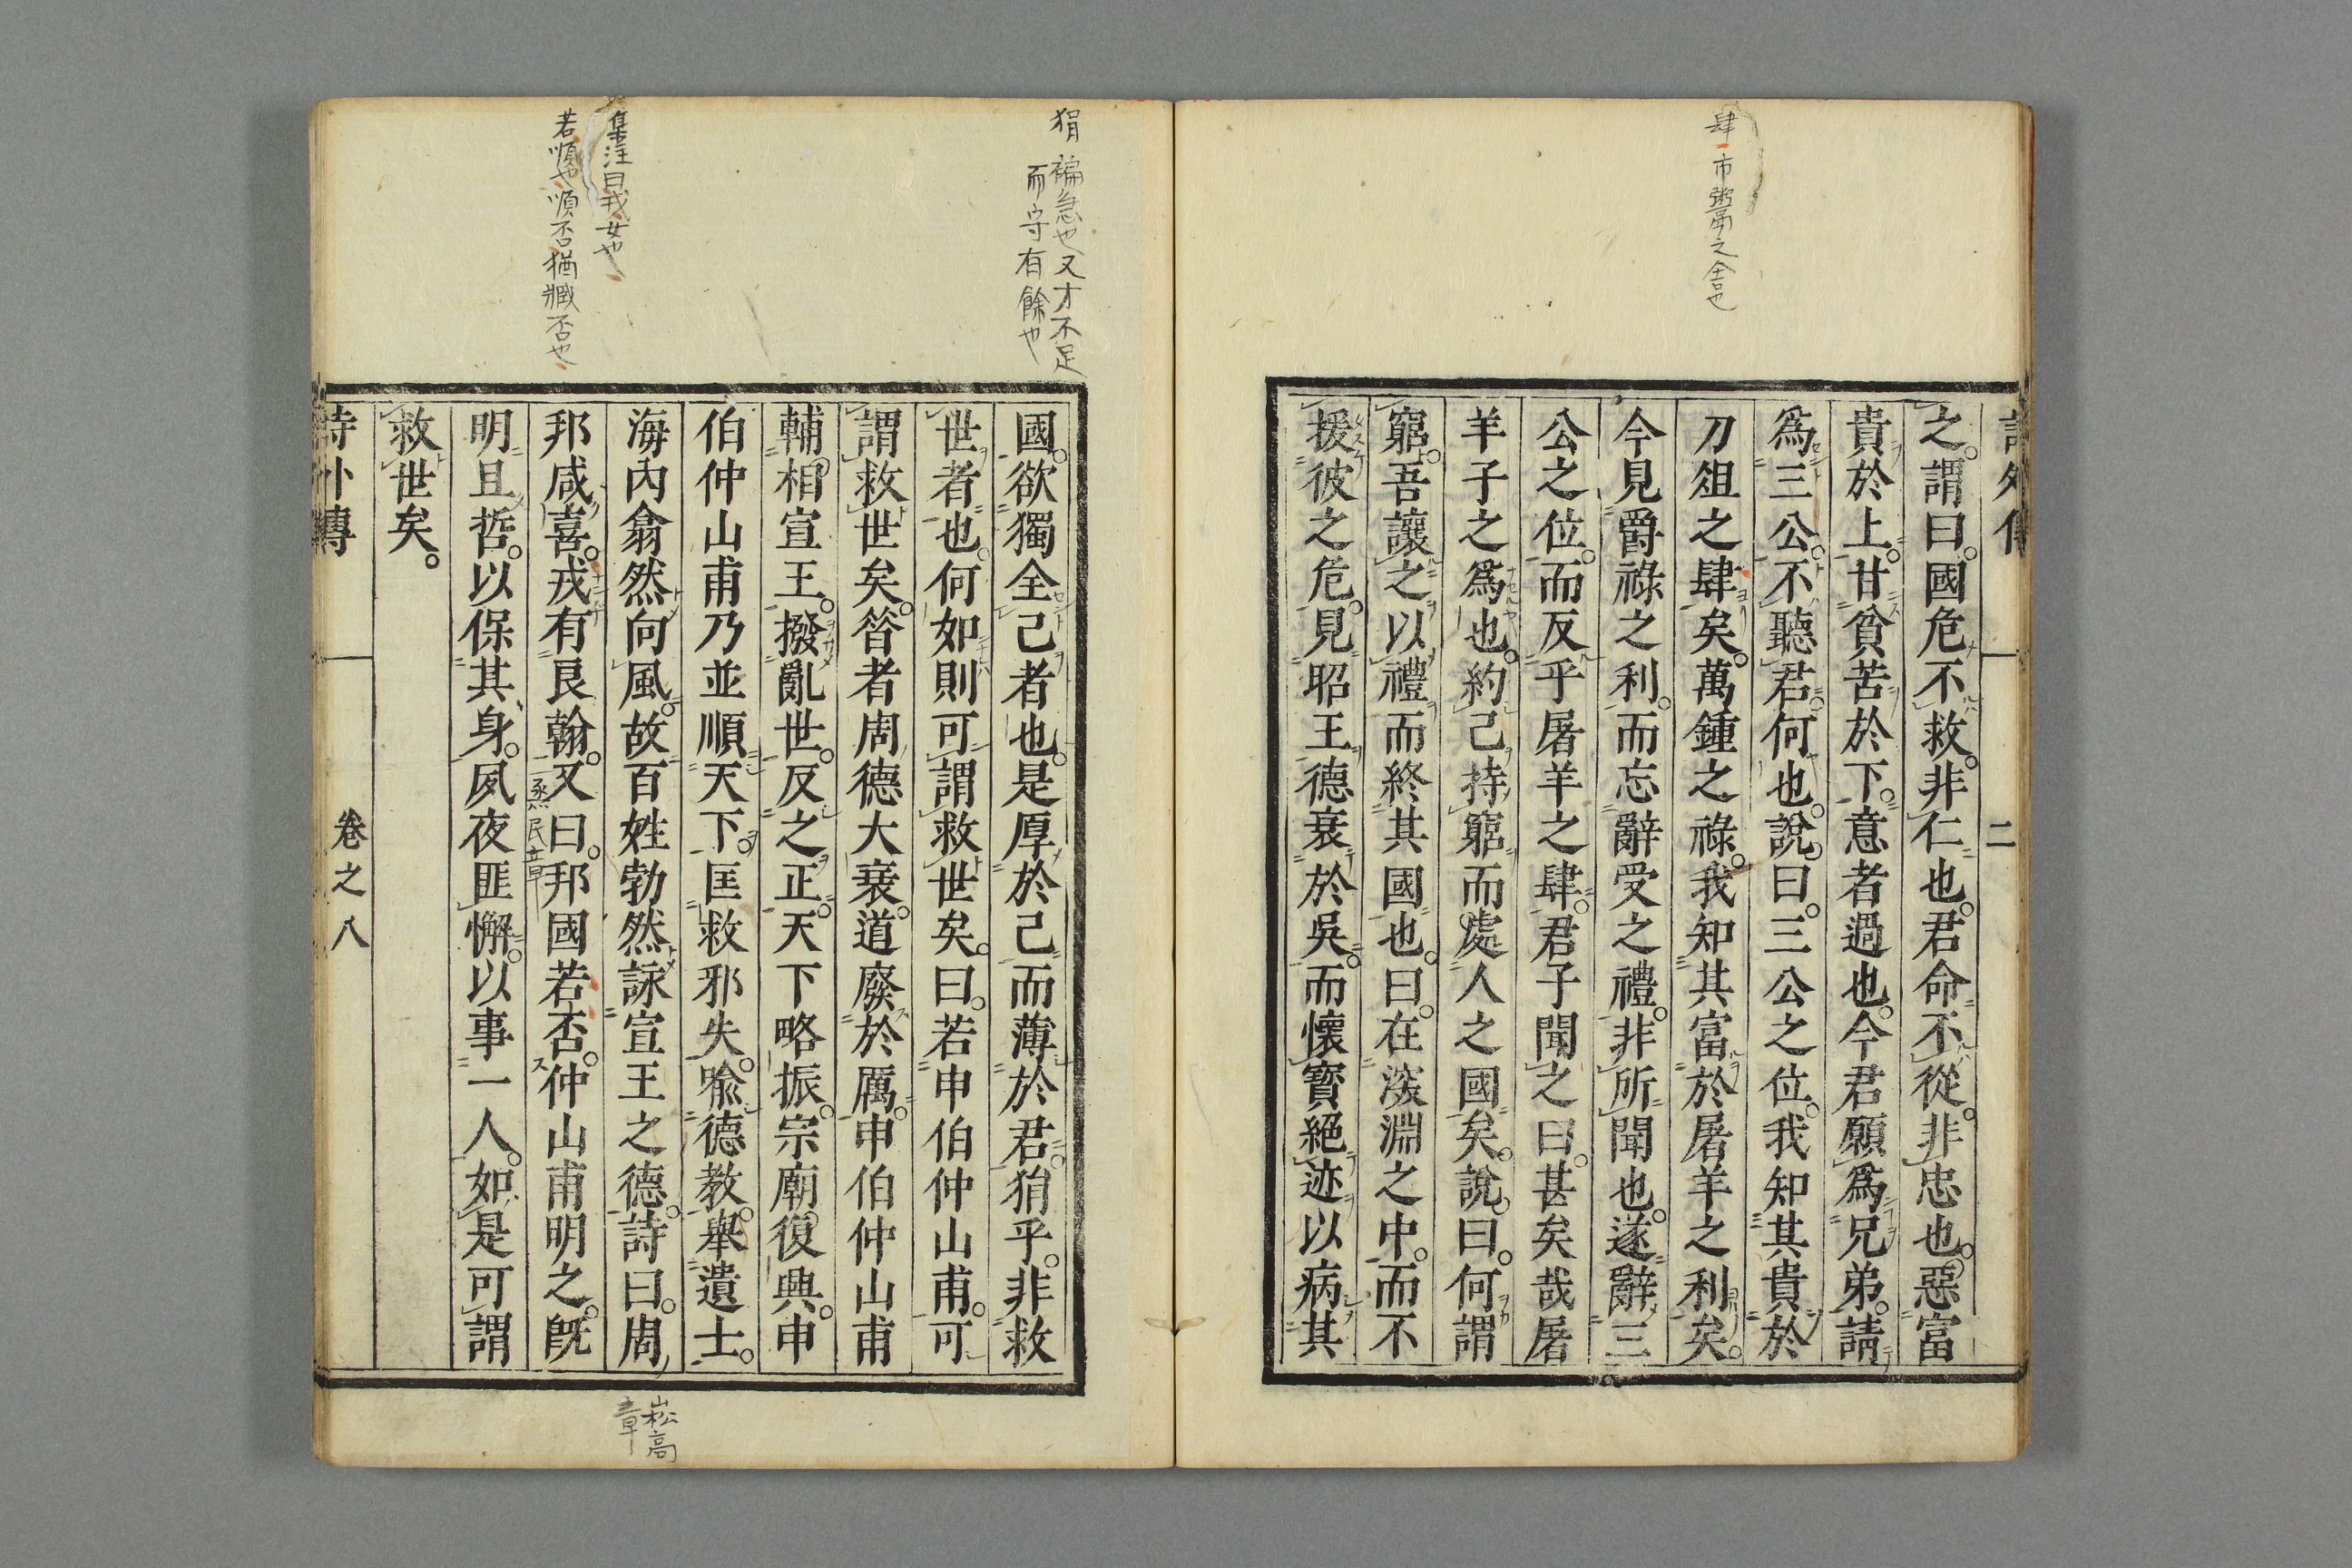 肆 市鬻之舍也
詩外傳 二
之。謂曰。國危不救。非仁也。君命不從。非忠也。惡富
貴於上。甘貧苦於下。意者過也。今君願爲兄弟。請
爲三公。不聽君。何也。說曰。三公之位。我知其貴於
刀俎之肆矣。萬鍾之祿。我知其富於屠羊之利矣。
今見爵祿之利。而忘辭受之禮。非所聞也。遂辭三
公之位。而反乎屠羊之肆。君子聞之曰。甚矣哉屠
羊子之爲也。約己持窮而處人之國矣。說曰。何謂
窮。吾讓之以禮而終其國也。曰。在深淵之中。而不
援彼之危。見昭王德衰於吳。而懷寳絕迹以病其
狷 褊急也又才不足
而守有餘也
國。欲獨全己者也。是厚於己而薄於君。狷乎。非救
世者也。何如則可謂救世矣。曰。若申伯仲山甫。可
謂救世矣。昝者周德大衰。道廢於厲。申伯仲山甫
輔相宣王。撥亂世。反之正。天下略振。宗廟復興。申
伯仲山甫乃並順天下。匡救邪失。喩德教。舉遺士。
海內翕然向風。故百姓勃然詠宣王之德。詩曰。周
崧高
章
集注曰戎女也
若順也順否猶臧否也
邦咸喜。戎有良翰。又曰。邦國若否。仲山甫明之。旣
烝民章
明且哲。以保其身。夙夜匪懈。以事一人。如是可謂
救世矣。
詩外傳 卷之八